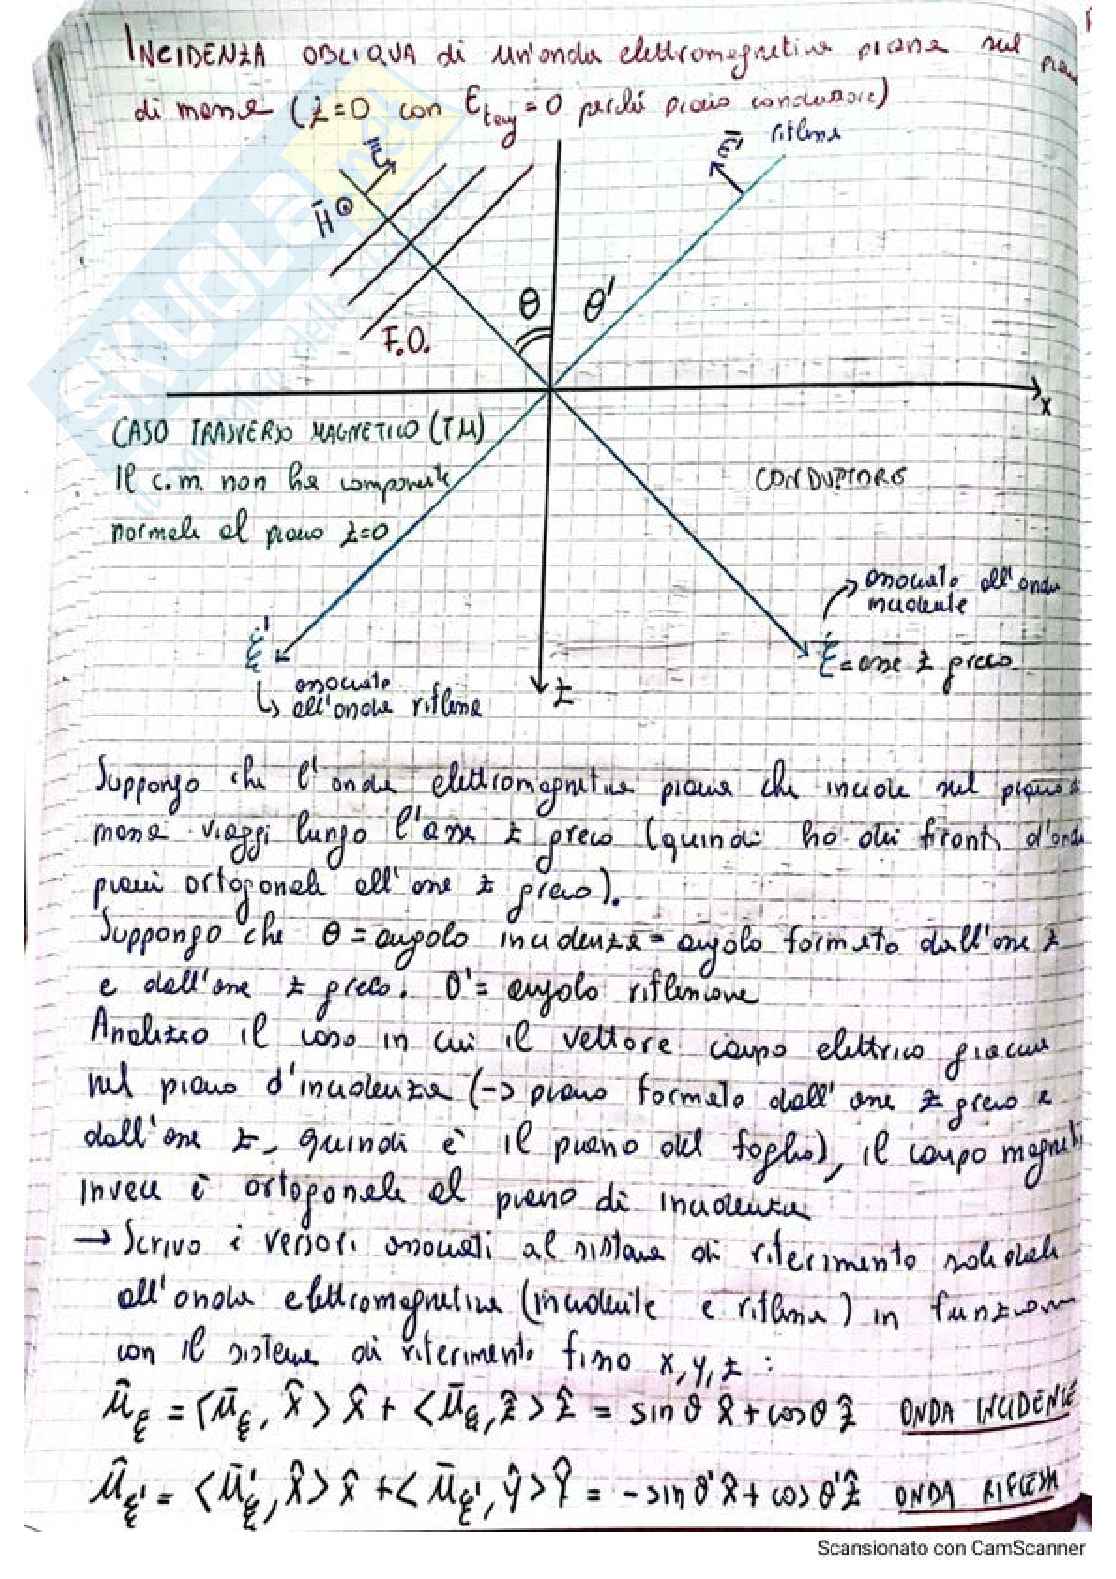 INCIDENZA OBLIQUA di un'onda elettromagnetica piana sul piano
di massa (z=0 con Etang=0 perché piano conduttore)
Ē
Ē' riflessa
H̄
θ θ'
F.O.
x
CASO TRASVERSO MAGNETICO (TM)
Il c.m. non ha componente
normale al piano z=0
CONDUTTORE
associato all'onda
incidente
ξ'
ξ = asse z greco
associato
all'onda riflessa
z
Suppongo che l'onda elettromagnetica piana che incide sul piano
massa viaggi lungo l'asse z greco (quindi ho dei fronti d'onda
piani ortogonali all'asse z greco).
Suppongo che θ = angolo incidenza = angolo formato dall'asse z
e dall'asse z greco. θ' = angolo riflessione
Analizzo il caso in cui il vettore campo elettrico giace
nel piano d'incidenza (-> piano formato dall'asse z greco e
dall'asse z, quindi è il piano del foglio), il campo magneti
invece è ortogonale al piano di incidenza
→ Scrivo i versori associati al sistema di riferimento solidale
all'onda elettromagnetica (incidente e riflessa) in funzione
con il sistema di riferimento fisso x, y, z :
û_ξ = <ū_ξ, x̂> x̂ + <ū_ξ, ẑ> ẑ = sinθ x̂ + cosθ ẑ ONDA INCIDENTE
û_ξ' = <ū'_ξ, x̂> x̂ + <ū_ξ', ŷ> ŷ = -sinθ' x̂ + cosθ' ẑ ONDA RIFLESSA
Scansionato con CamScanner